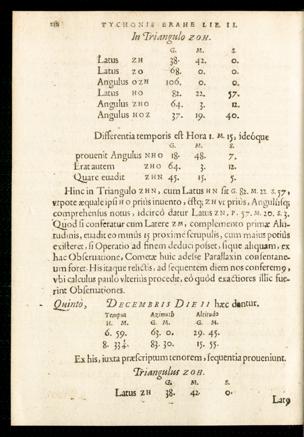 TYCHONIS BRAHE LIB. II.
In Triangulo ZOH.
G. M. S.
Latus ZH 38. 42. 0.
Latus ZO 68. 0. 0.
Angulus OZH 106. 0. 0.
Latus HO 82. 22. 57.
Angulus ZHO 64. 3. 12.
Angulus HOZ 37. 19. 40.
Differentia temporis est Hora 1. M. 15, ideóque
G. M. S.
prouenit Angulus NHO 18. 48. 7.
Erat autem ZHO 64. 3. 12.
Quare euadit ZHN 45. 15. 5.
Hinc in Triangulo ZHN, cum Latus HN sit G. 82. M. 22. S. 57,
vtpote æquale ipsi HO priùs inuento, éstq; ZH vt priùs, Angulúsq;
comprehensus notus, idcircò datur Latus ZN, P. 57. M. 20. S. 3.
Quod si conferatur cum Latere ZM, complemento primæ Alti-
tudinis, euadit eo minùs 15 proximè scrupulis, cum maius potiùs
existeret, si Operatio ad finem deduci posset, sique aliquam, ex
hac Obseruatione, Cometæ huic adesse Parallaxin consentane-
um foret. His itaque relictis, ad sequentem diem nos conferemꝰ,
vbi calculus paulò vlteriùs procedit, eò quòd exactiores illic fue-
rint Obseruationes.
Quintò, DECEMBRIS DIE 11 hæc dantur.
Tempus Azimuth Altitudo
H. M. G. M. G. M.
6. 59. 63. 0. 29. 45.
8. 33¼. 83. 30. 15. 55.
Ex his, iuxta præscriptum tenorem, sequentia proueniunt.
Triangulus ZOH.
G. M. S.
Latus ZH 38. 42. 0.
Latꝰ